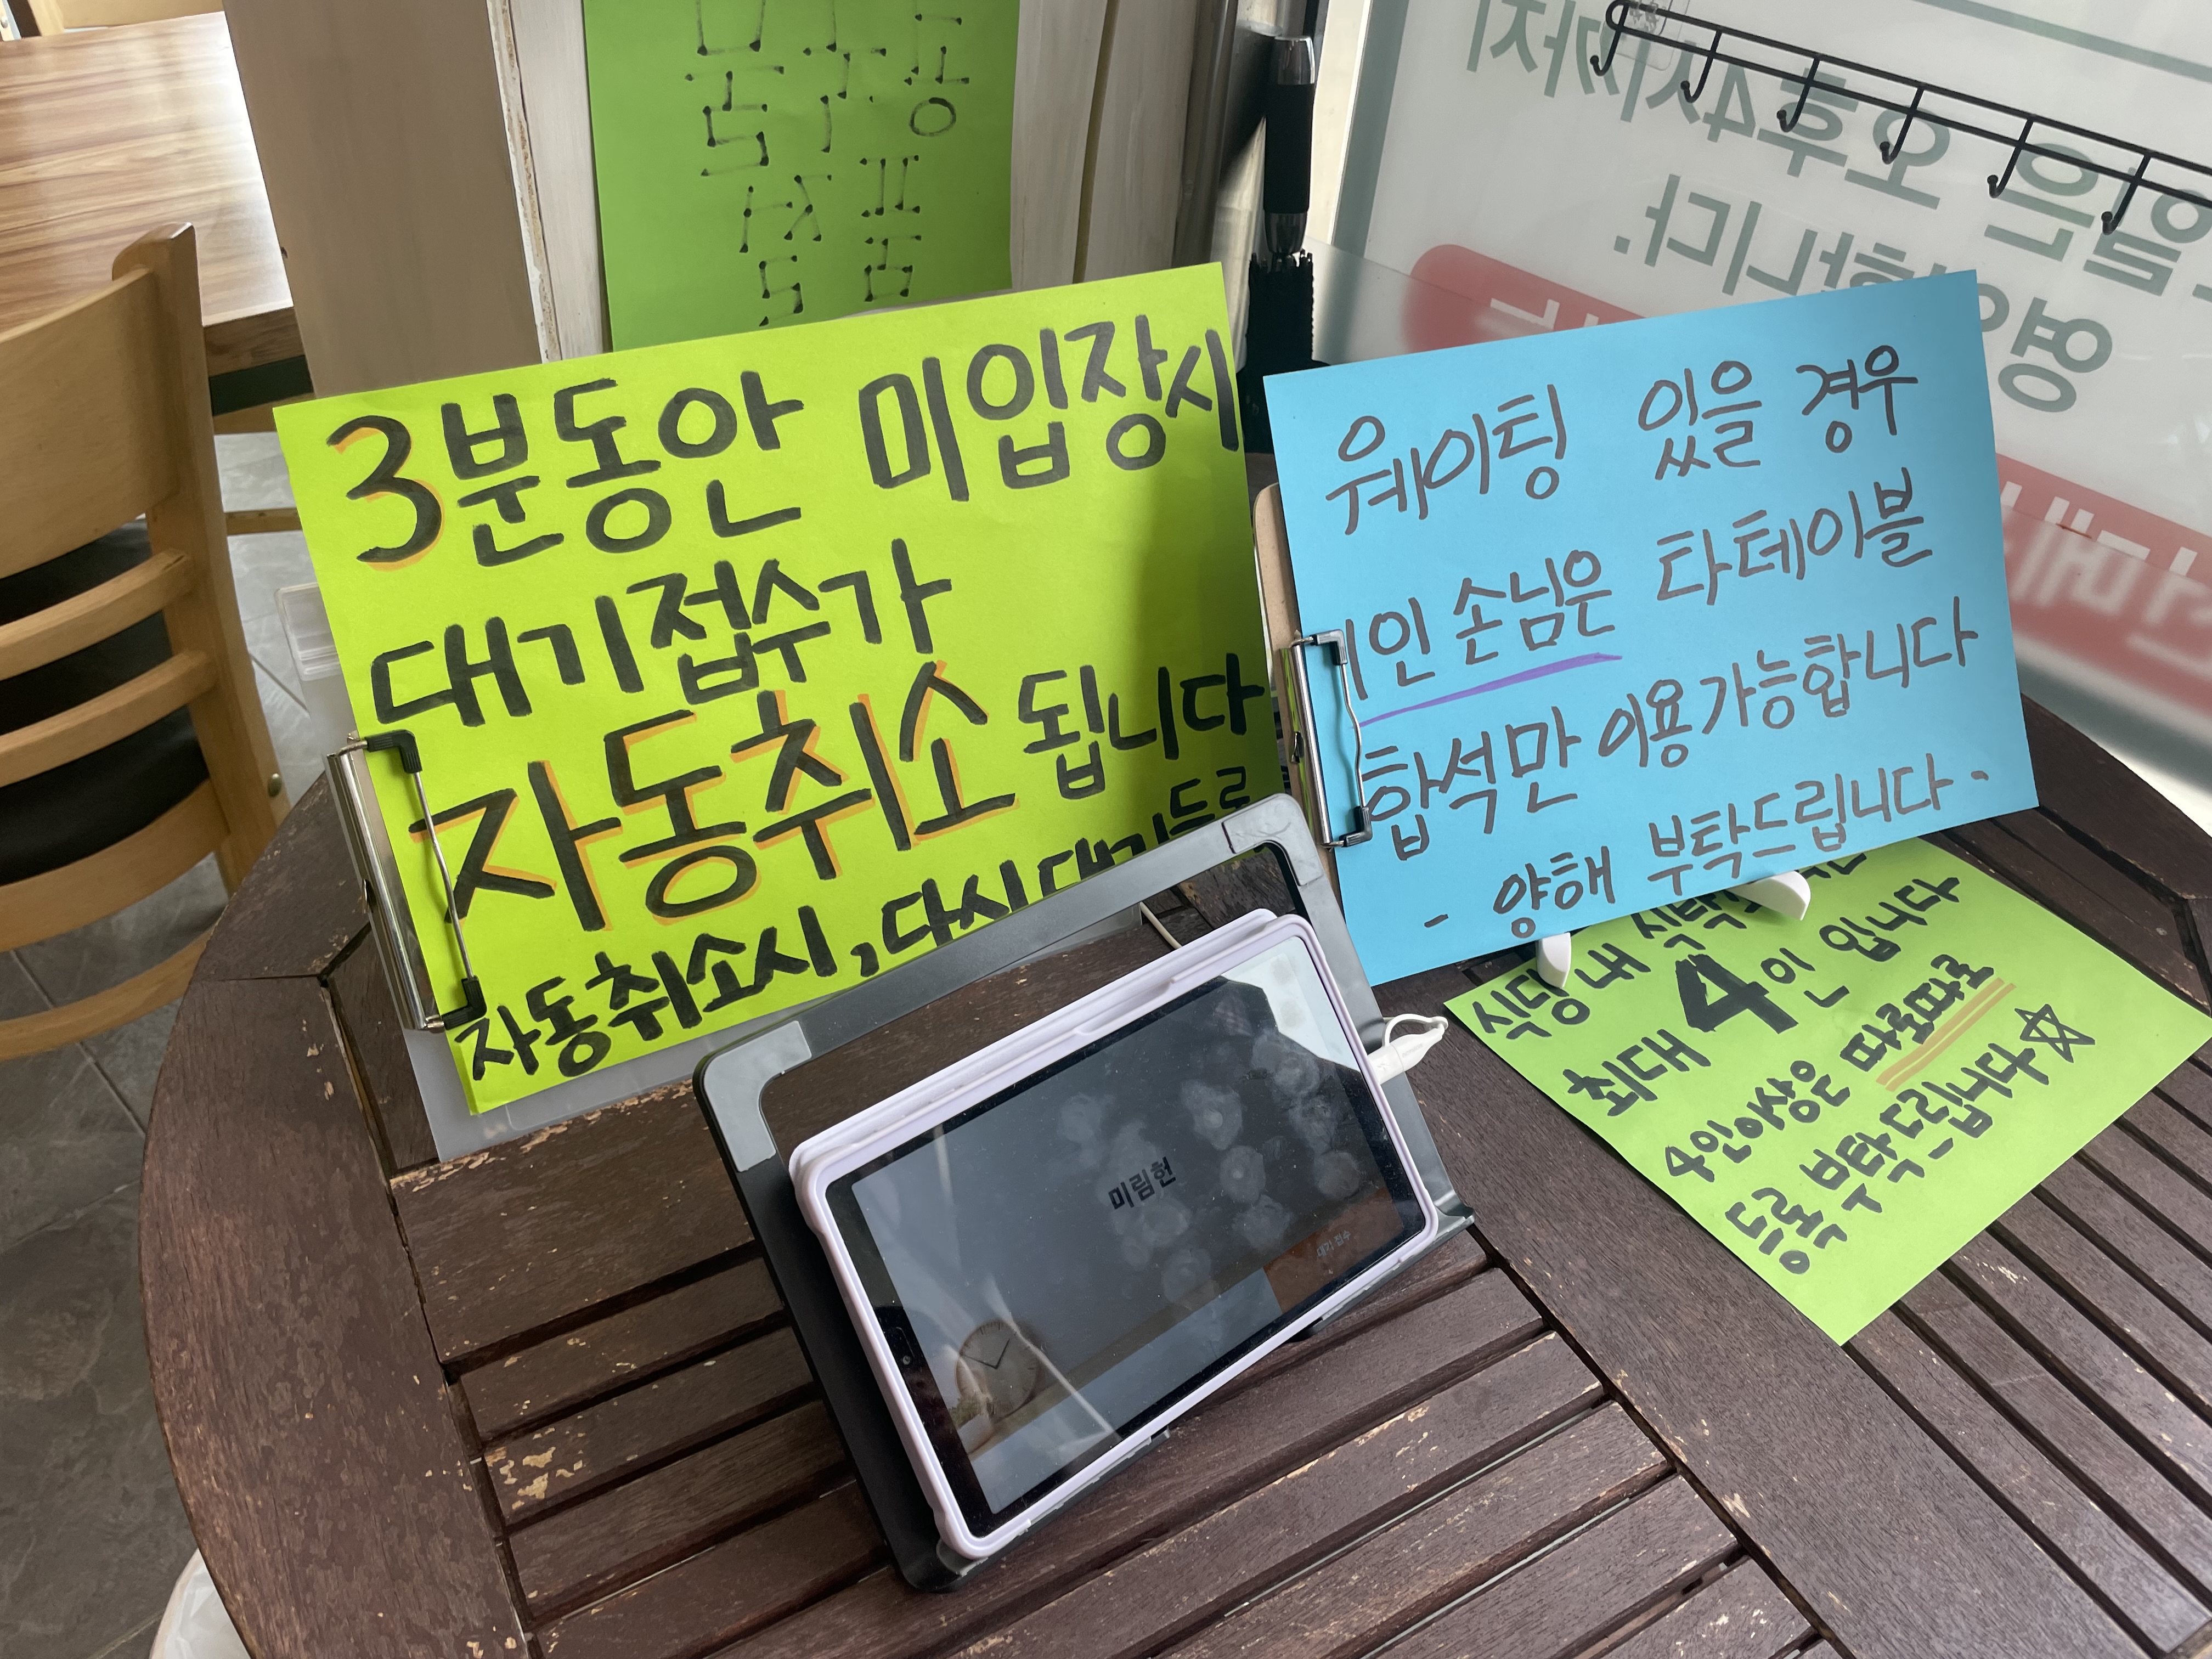 3분동안 미입장시
대기접수가
자동취소 됩니다
자동취소시, 다시
웨이팅 있을 경우
1인 손님은 타테이블
합석만 이용가능합니다
- 양해 부탁드립니다 -
식당 내
최대 4인 입니다
4인이상은 따로따로
등록 부탁드립니다☆
미림헌
대기 접수
오후4시까지